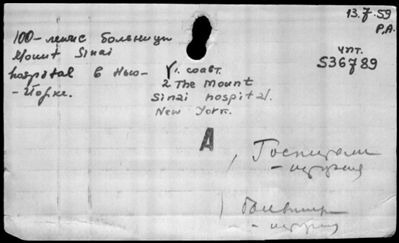 13.7.59
P.A.
100-летие больницы
Mount Sinai
hospital в Нью-
-Йорке.
чпт.
536789
1. соавт.
2 The Mount
Sinai hospital.
New York.
A
Госпитали
- история
больницы
- история